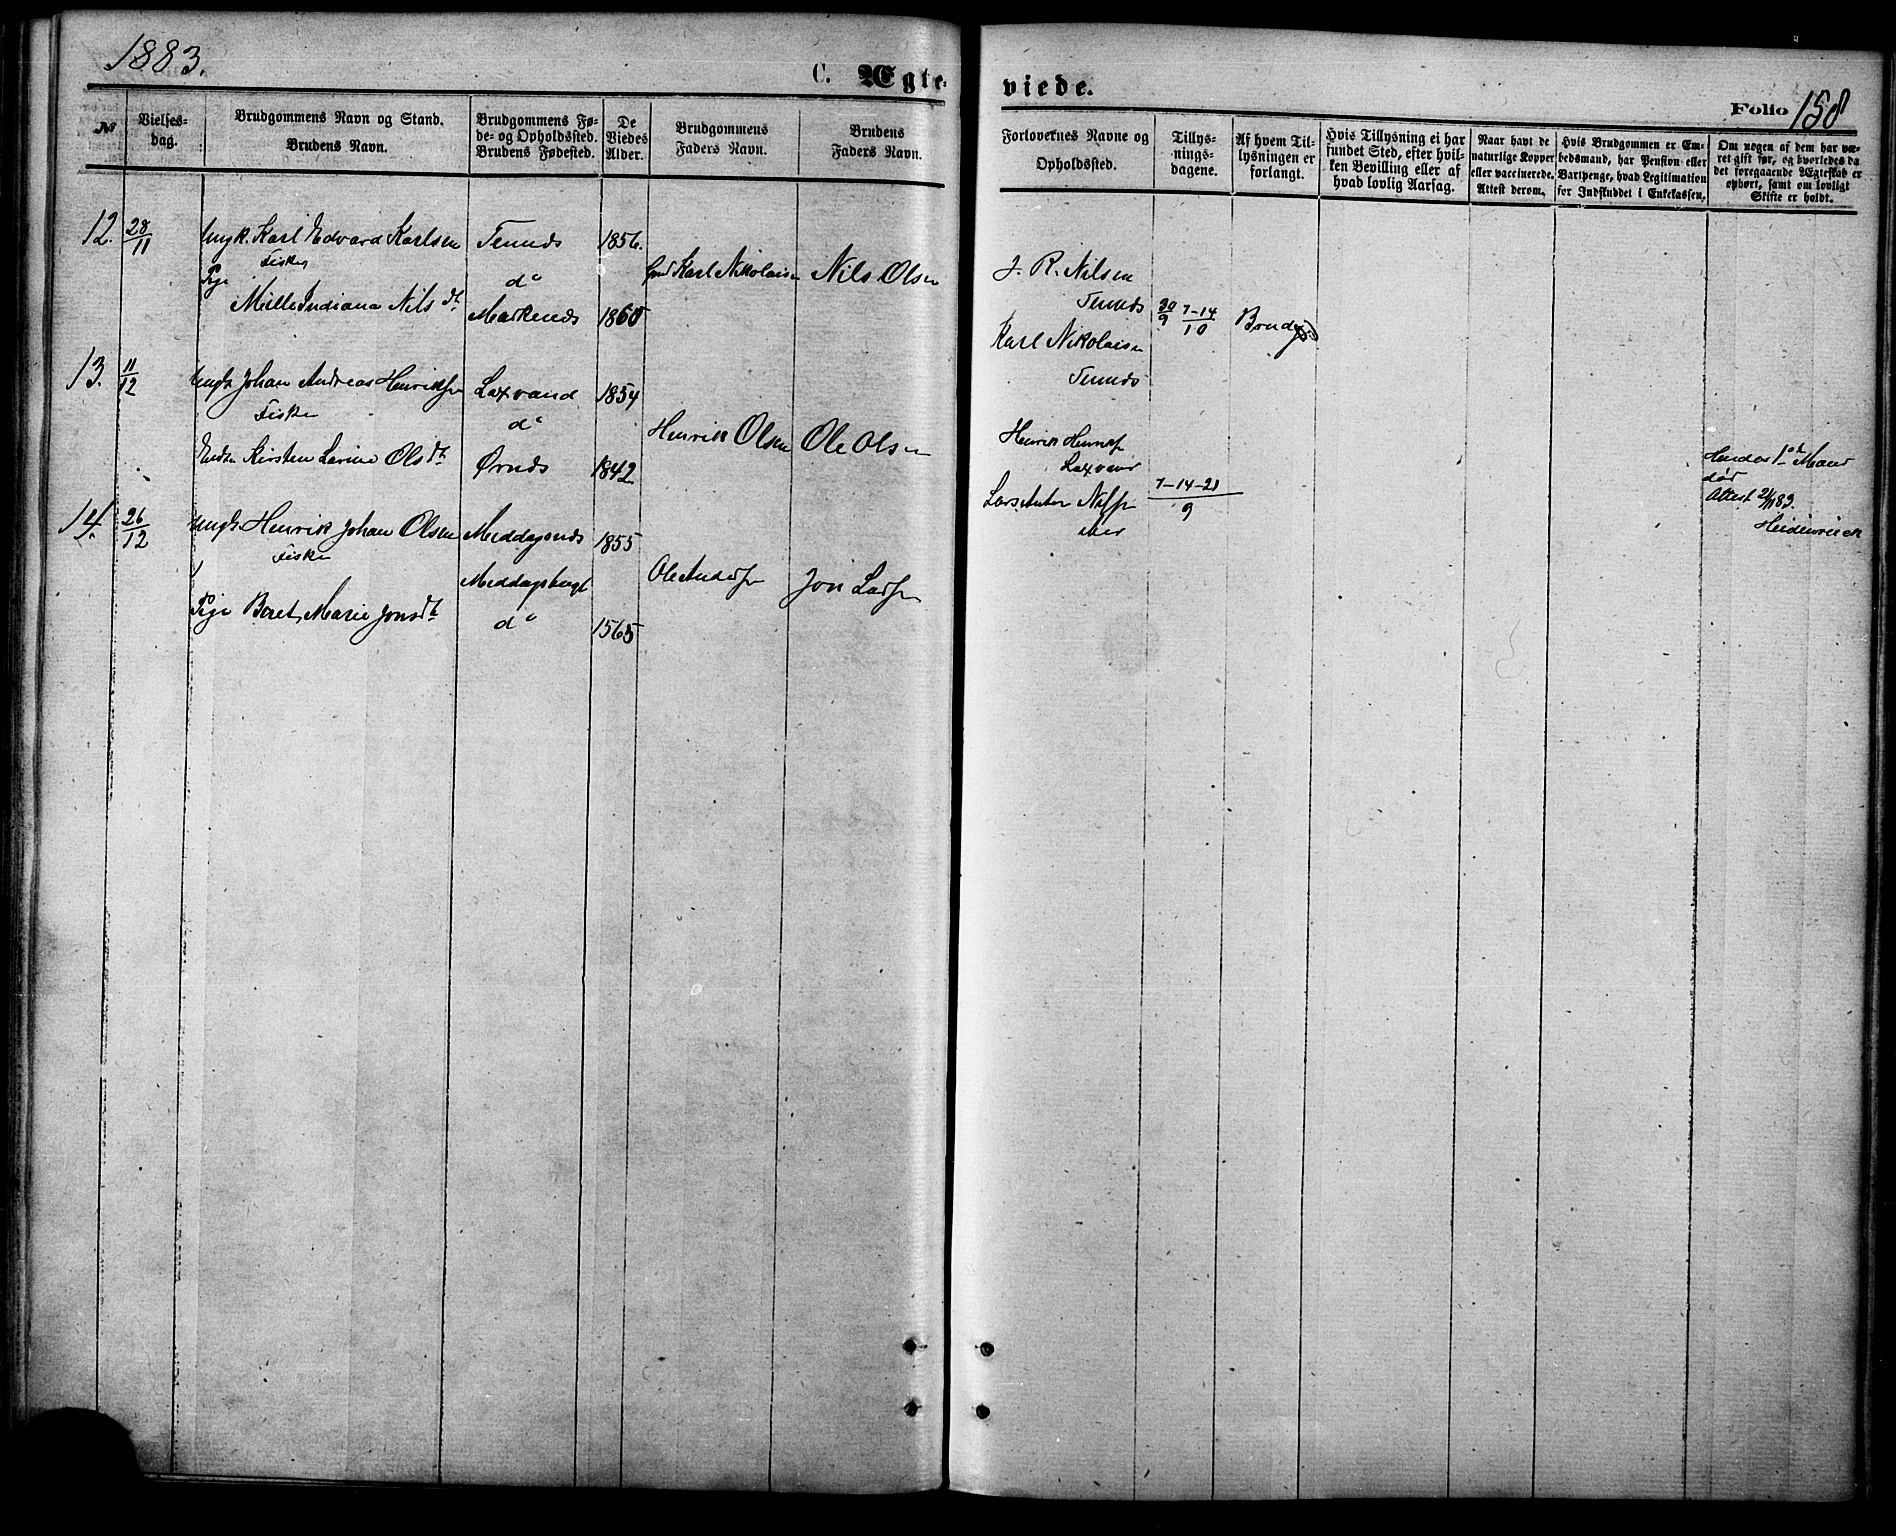 1883.
C. Ægte-
viede.
Folio 158
№
Vielses-
dag.
Brudgommens Navn og Stand.
Brudens Navn.
Brudgommens Fø-
de- og Opholdssted.
Brudens Fødested.
De
Viedes
Alder.
Brudgommens
Faders Navn.
Brudens
Faders Navn.
Forlovernes Navne og
Opholdssted.
Tillys-
nings-
dagene.
Af hvem Til-
lysningen er
forlangt.
Hvis Tillysning ei har
fundet Sted, efter hvil-
ken Bevilling eller af
hvad lovlig Aarsag.
Naar havt de
naturlige Kopper
eller vaccinerede.
Attest derom.
Hvis Brudgommen er Em-
bedsmand, har Pension eller
Vartpenge, hvad Legitimation
for Indskuddet i Enkekassen.
Om nogen af dem har væ-
ret gift før, og hvorledes da
det foregaaende Ægteskab er
ophørt, samt om lovligt
Skifte er holdt.
12. 28/11 Ungk. Karl Edvard Karlsen
Fisker
Pige
Mille Indiana Nils dt
d"
1856.
1860
Karl Nikolaisen
Nils Olsen
J. R. Nilsen
Karl Nikolaisen
30/9 7-14/10
13. 11/12 Ungk. Johan Andreas Henriksen
Fisker
Kirsten Larine Olsdt
Laxvand
d"
Ørnds
1854
1842
Henrik Olsen
Ole Olsen
Henrik
Lars Anton
7-14-21/9
Hendes 1ste Mand
død
Attest
14. 26/12 Ungk. Henrik Johan Olsen
Fisker
Pige Beret Marie Jonsdt
Meddagsnds
Meddagsbugt
d"
1855
1565
Ole Andersen
Jon Larsen